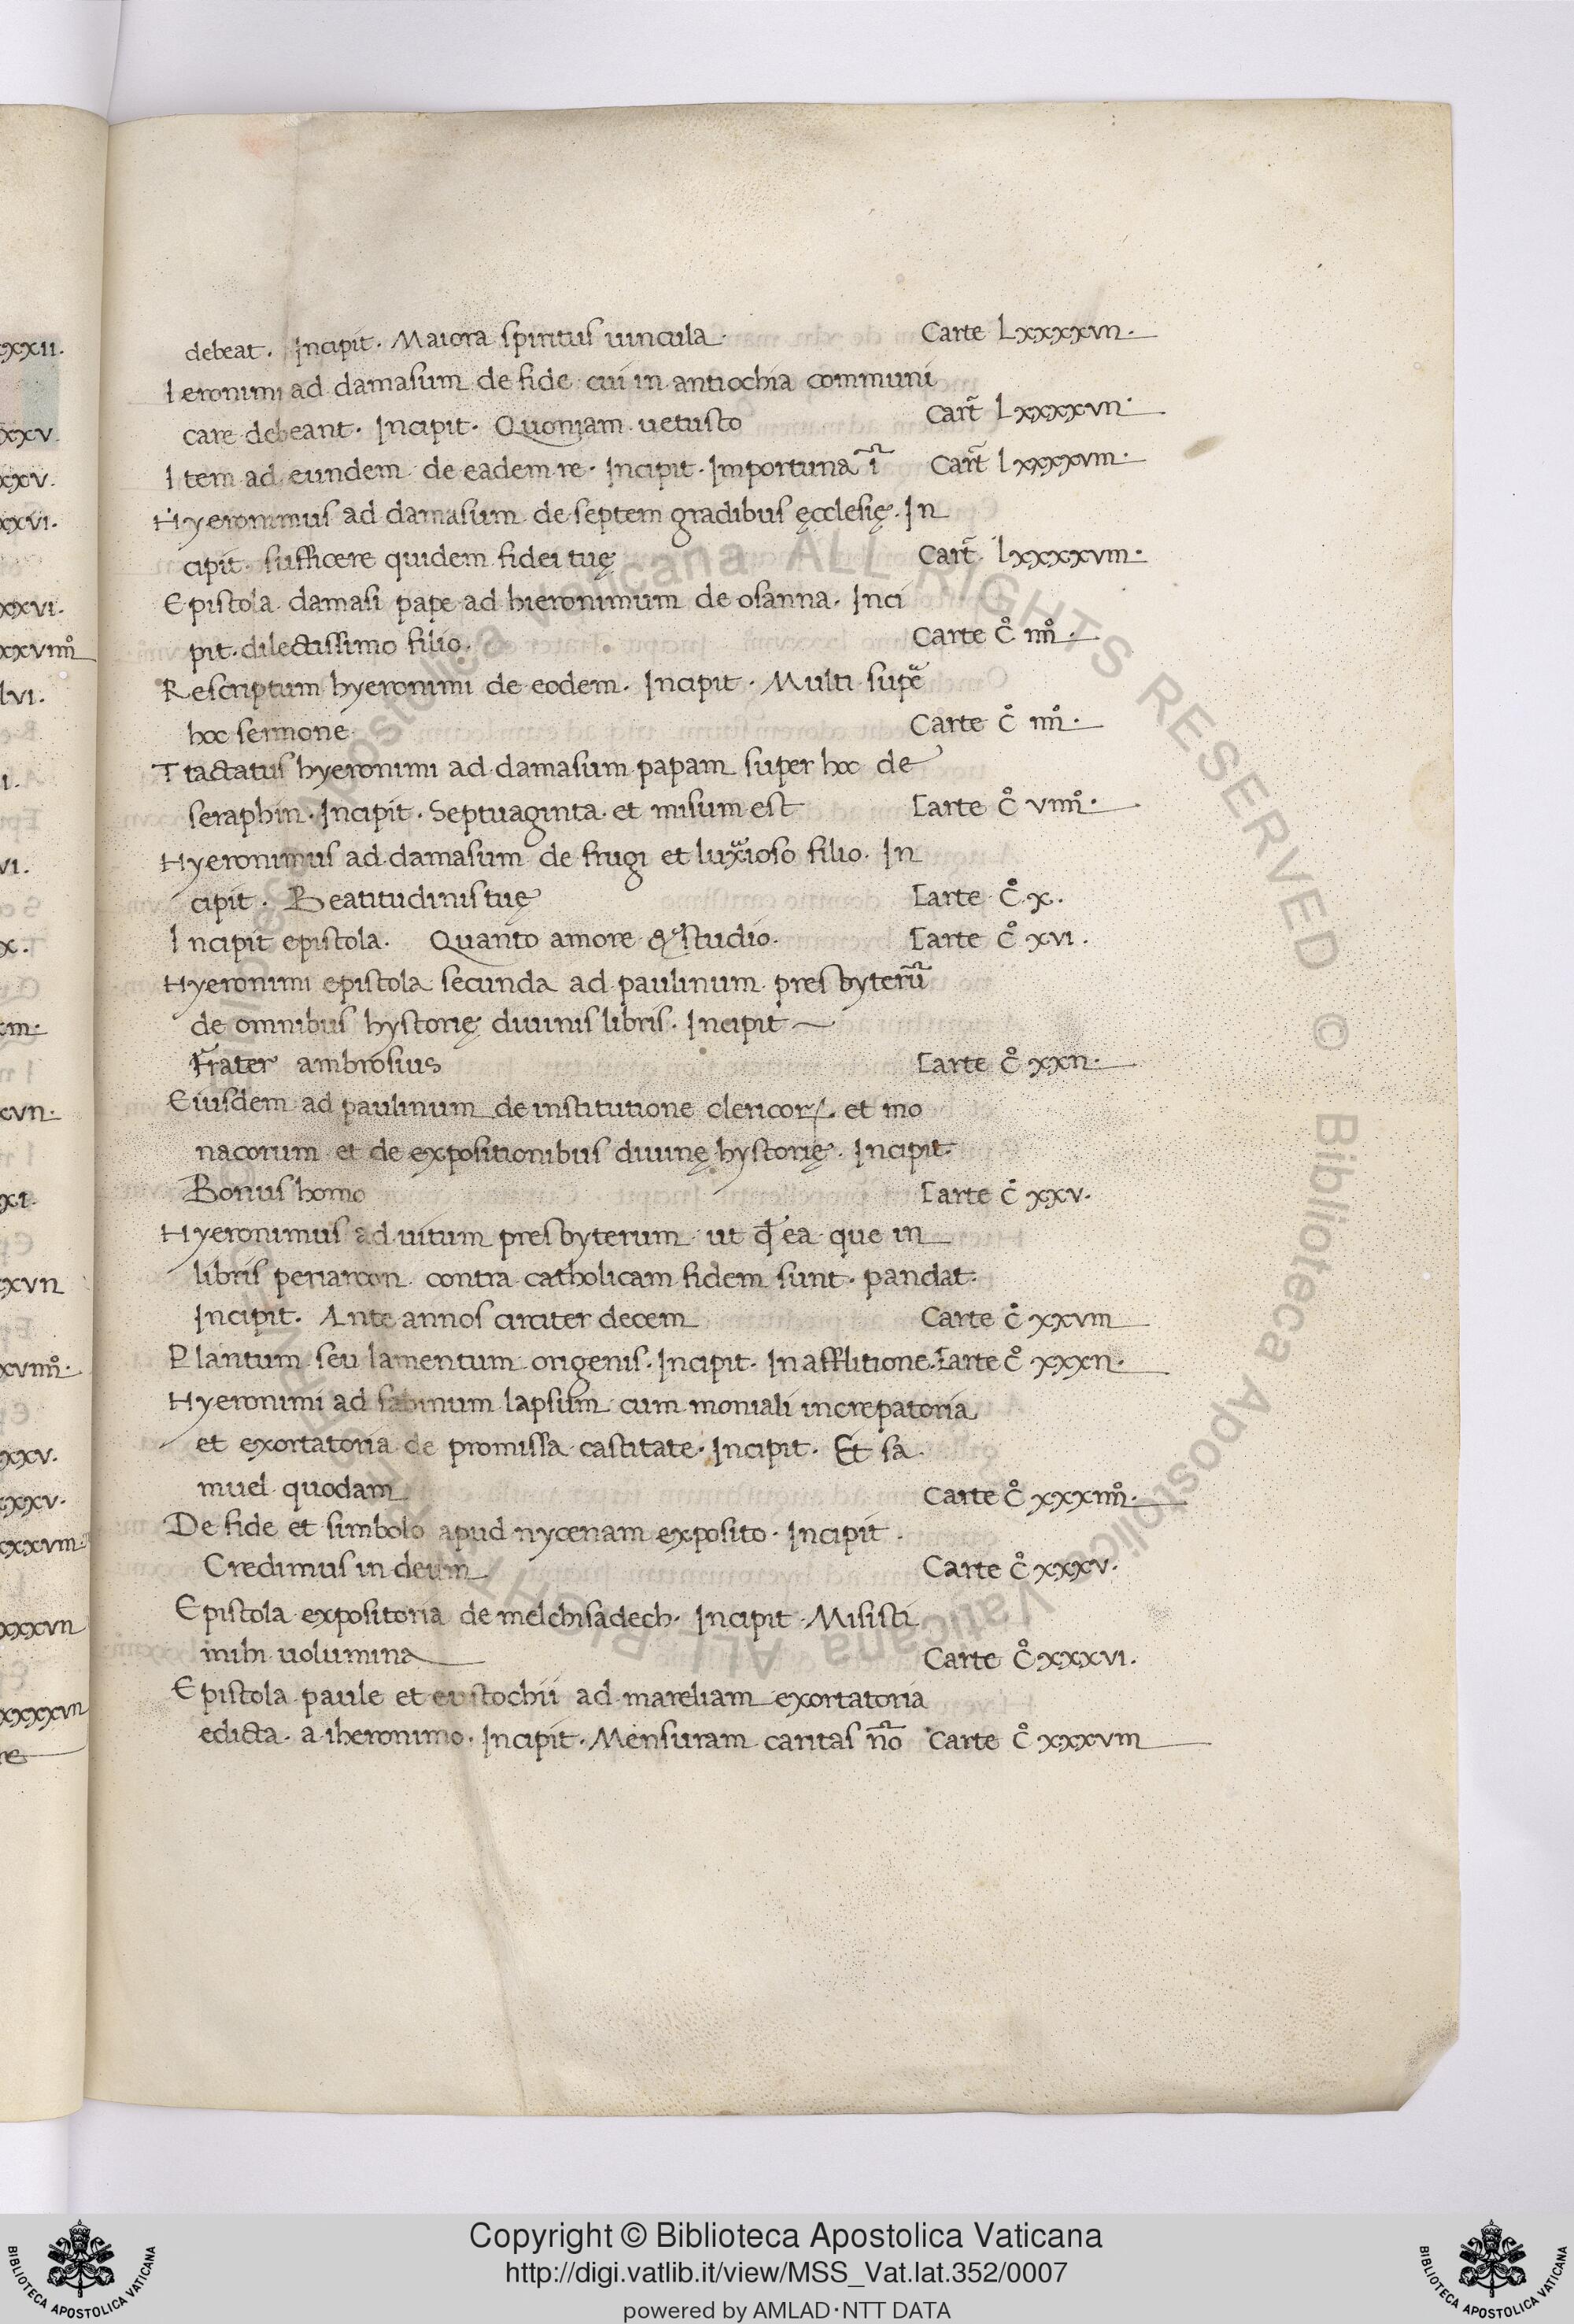 debeat. Incipit. Maiora spiritus uincula. Carte lxxxxvii.
Ieronimi ad damasum de fide cui in antiochia communi
care debeant. Incipit. Quoniam uetusto Cart̃ lxxxxvii.
Item ad eundem de eadem re. Incipit. Importuna ĩ Cart̃ lxxxxviii.
Hyeronimus ad damasum de septem gradibus ęcclesię. In
cipit. sufficere quidem fidei tuę Cart̃ lxxxxviii.
Epistola damasi pape ad hieronimum de osanna. Inci
pit. dilectissimo filio. Carte c̊ iiii̊.
Rescriptum hyeronimi de eodem. Incipit. Multi sup̃
hoc sermone Carte c̊ iiii̊.
Ttactatus hyeronimi ad damasum papam super hoc de
seraphin. Incipit. Septuaginta et misum est Carte c̊ viiii̊.
Hyeronimus ad damasum de frugi et luxioso filio. In
cipit. Beatitudinis tuę Carte c̊ x.
Incipit epistola. Quanto amore & studio. Carte c̊ xvi.
Hyeronimi epistola secunda ad paulinum presbyterũ
de omnibus hystorię diuinis libris. Incipit
Frater ambrosius Carte c̊ xxii.
Eiusdem ad paulinum de institutione clericoꝝ et mo
nacorum et de expositionibus diuinę hystorię. Incipit.
Bonus homo Carte c̊ xxv.
Hyeronimus ad uitum presbyterum ut ea que in
libris periarcon contra catholicam fidem sunt. pandat.
Incipit. Ante annos circiter decem Carte c̊ xxviii
Plantum seu lamentum origenis. Incipit. In afflitione. Carte c̊ xxxii.
Hyeronimi ad sabinum lapsum cum moniali increpatoria
et exortatoria de promissa castitate. Incipit. Et sa
muel quodam Carte c̊ xxxiiii̊.
De fide et simbolo apud nycenam exposito. Incipit.
Credimus in deum Carte c̊ xxxv.
Epistola expositoria de melchisadech. Incipit. Misisti
mihi uolumina Carte c̊ xxxvi.
Epistola paule et eustochii ad mareliam exortatoria
edicta. a iheronimo. Incipit. Mensuram caritas ñо Carte c̊ xxxviii
Copyright © Biblioteca Apostolica Vaticana
http://digi.vatlib.it/view/MSS_Vat.lat.352/0007
powered by AMLAD·NTT DATA